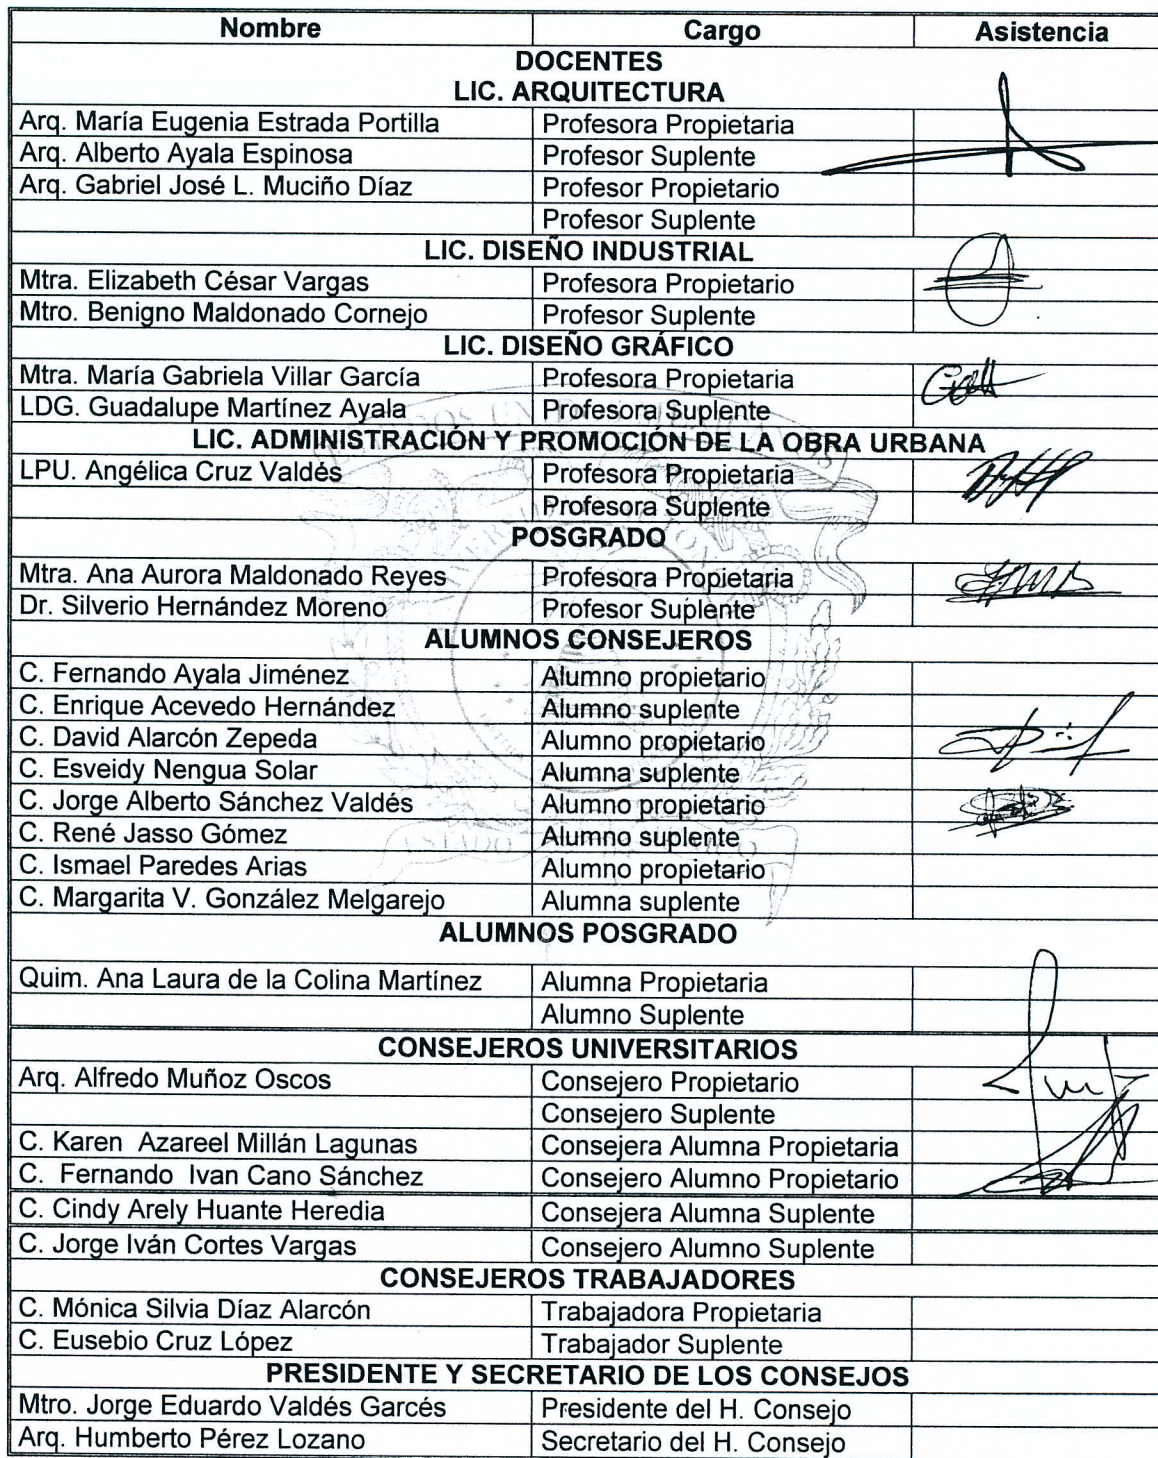 Nombre Cargo Asistencia
DOCENTES
LIC. ARQUITECTURA
Arq. María Eugenia Estrada Portilla Profesora Propietaria
Arq. Alberto Ayala Espinosa Profesor Suplente
Arq. Gabriel José L. Muciño Díaz Profesor Propietario
Profesor Suplente
LIC. DISEÑO INDUSTRIAL
Mtra. Elizabeth César Vargas Profesora Propietario
Mtro. Benigno Maldonado Cornejo Profesor Suplente
LIC. DISEÑO GRÁFICO
Mtra. María Gabriela Villar García Profesora Propietaria
LDG. Guadalupe Martínez Ayala Profesora Suplente
LIC. ADMINISTRACIÓN Y PROMOCIÓN DE LA OBRA URBANA
LPU. Angélica Cruz Valdés Profesora Propietaria
Profesora Suplente
POSGRADO
Mtra. Ana Aurora Maldonado Reyes Profesora Propietaria
Dr. Silverio Hernández Moreno Profesor Suplente
ALUMNOS CONSEJEROS
C. Fernando Ayala Jiménez Alumno propietario
C. Enrique Acevedo Hernández Alumno suplente
C. David Alarcón Zepeda Alumno propietario
C. Esveidy Nengua Solar Alumna suplente
C. Jorge Alberto Sánchez Valdés Alumno propietario
C. René Jasso Gómez Alumno suplente
C. Ismael Paredes Arias Alumno propietario
C. Margarita V. González Melgarejo Alumna suplente
ALUMNOS POSGRADO
Quim. Ana Laura de la Colina Martínez Alumna Propietaria
Alumno Suplente
CONSEJEROS UNIVERSITARIOS
Arq. Alfredo Muñoz Oscos Consejero Propietario
Consejero Suplente
C. Karen Azareel Millán Lagunas Consejera Alumna Propietaria
C. Fernando Ivan Cano Sánchez Consejero Alumno Propietario
C. Cindy Arely Huante Heredia Consejera Alumna Suplente
C. Jorge Iván Cortes Vargas Consejero Alumno Suplente
CONSEJEROS TRABAJADORES
C. Mónica Silvia Díaz Alarcón Trabajadora Propietaria
C. Eusebio Cruz López Trabajador Suplente
PRESIDENTE Y SECRETARIO DE LOS CONSEJOS
Mtro. Jorge Eduardo Valdés Garcés Presidente del H. Consejo
Arq. Humberto Pérez Lozano Secretario del H. Consejo